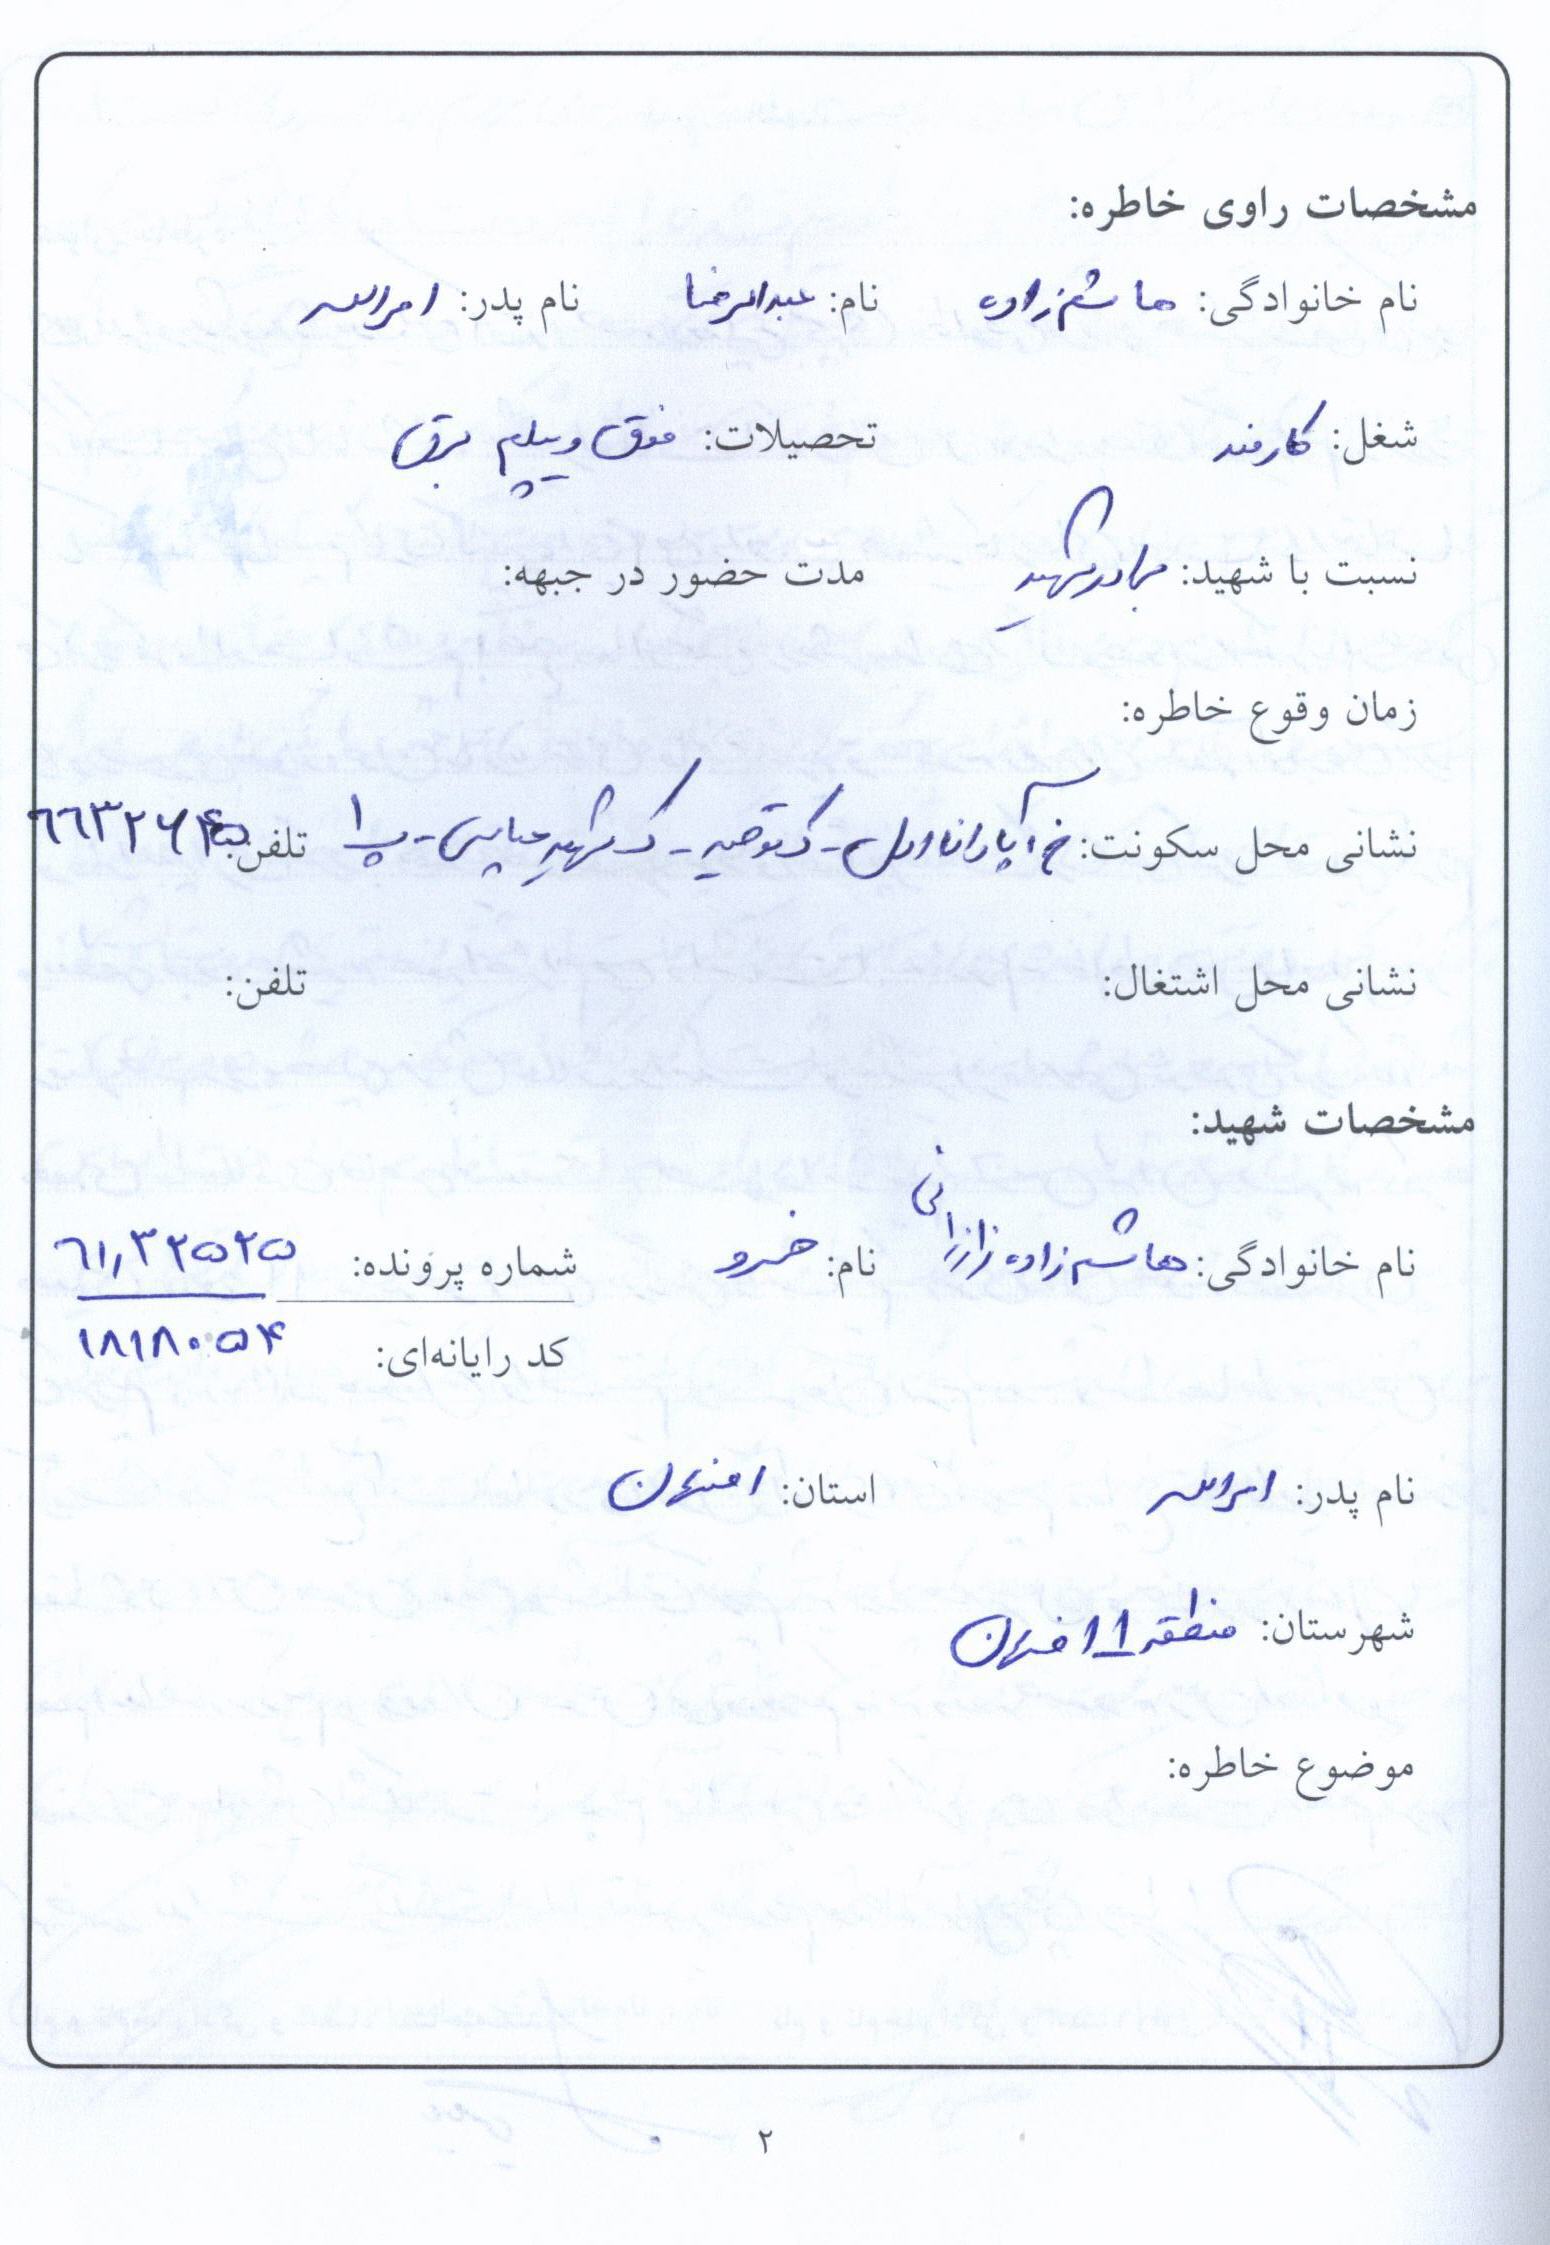 مشخصات راوی خاطره:
نام خانوادگی: هاشم زاده نام: عبدالرضا نام پدر: امراله
شغل: کارمند تحصیلات: فوق دیپلم برق
نسبت با شهید: برادر شهید مدت حضور در جبهه:
زمان وقوع خاطره:
نشانی محل سکونت: خ آپادانا اول - ک توحید - ک شهید عباسی - پ ۱ تلفن:
نشانی محل اشتغال: تلفن:
مشخصات شهید:
نام خانوادگی: هاشم زاده زازرانی نام: خسرو شماره پرونده: ۶۱٫۳۲۵۲۵
کد رایانه‌ای: ۱۸۱۸۰۵۴
نام پدر: امراله استان: اصفهان
شهرستان: منطقه ۱ اصفهان
موضوع خاطره:
۲